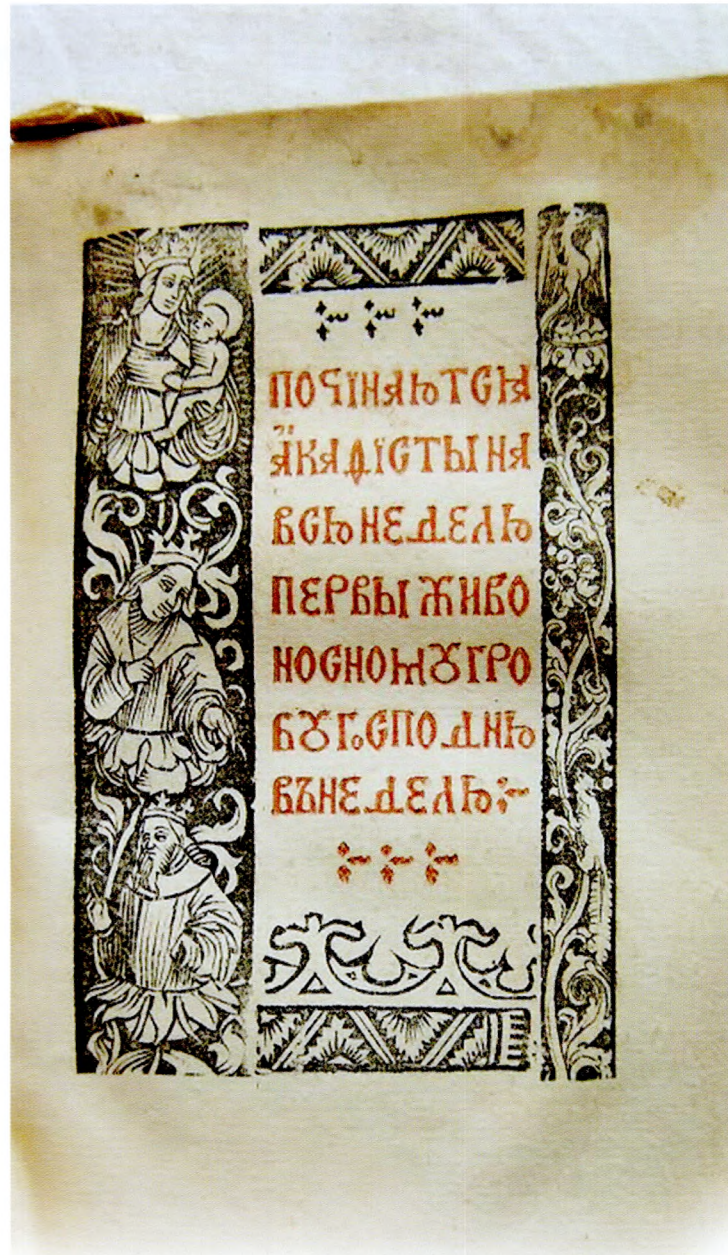 ПОЧЇНАЮТСѦ
АКАФЇСТЫ НА
ВСЮ НЕДЕЛЮ
ПЕРВЫ ЖИВО
НОСНОМꙊ ГРО
БꙊ ГОСПОДНЮ
ВЪ НЕДЕЛЮ